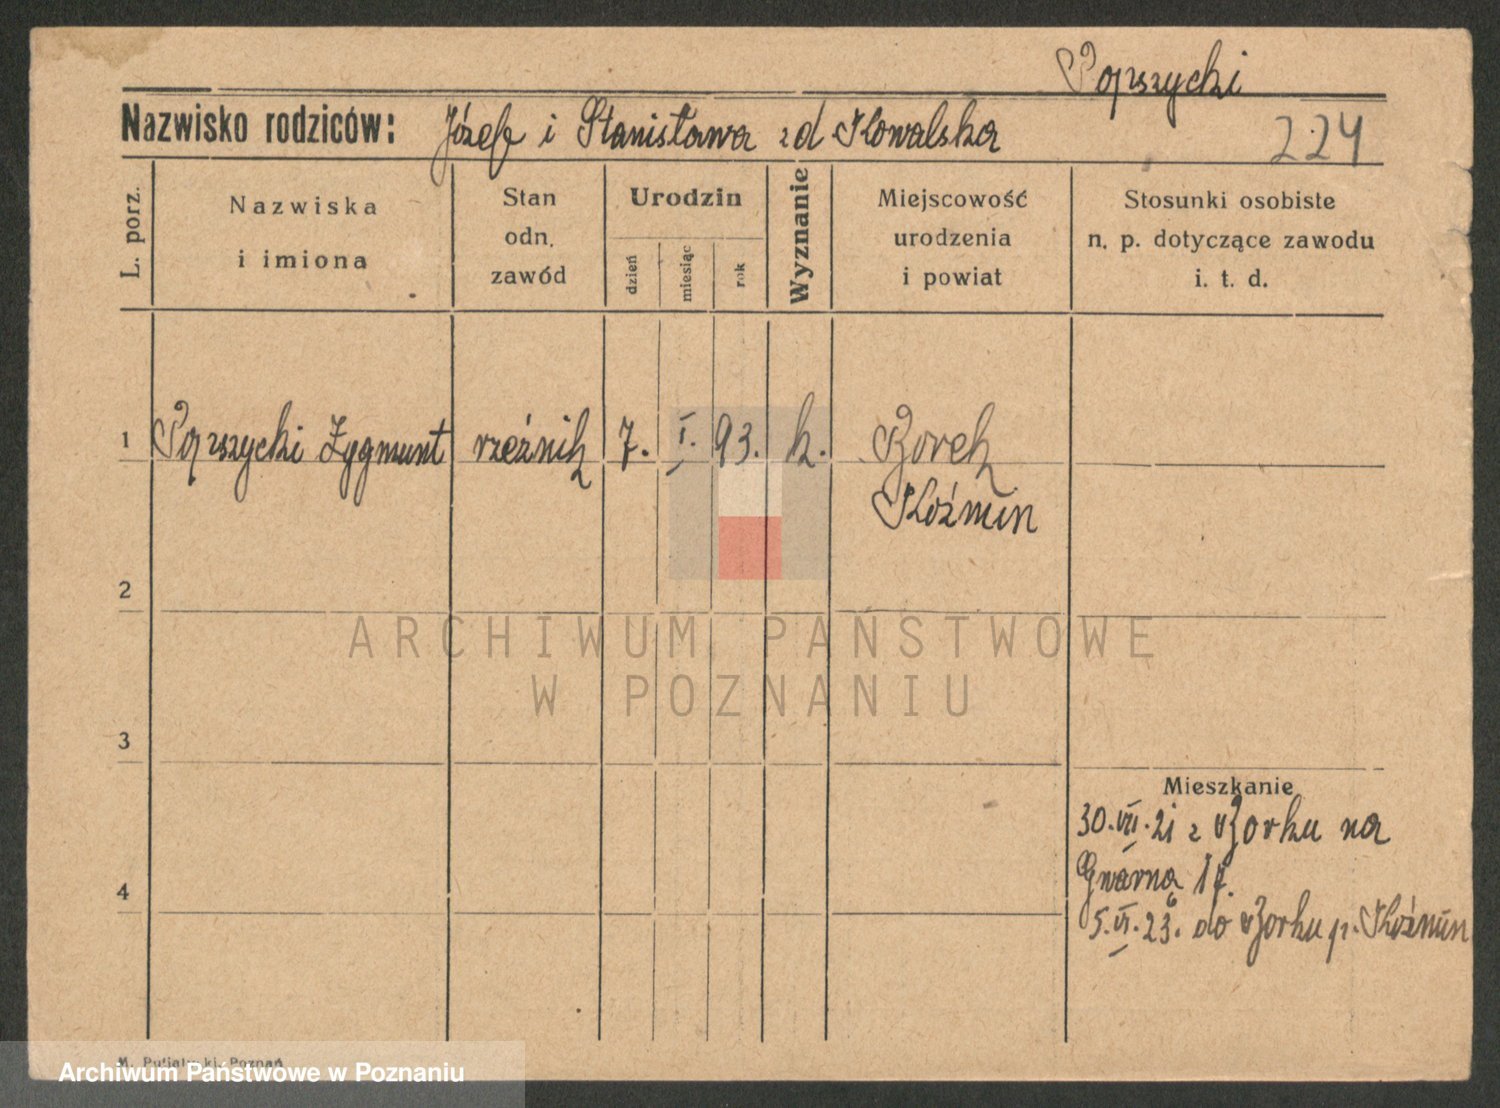 Popszycki
Nazwisko rodziców: Józef i Stanisława zd Kowalska
224
L. porz.
Nazwiska
i imiona
Stan
odn.
zawód
Urodzin
dzień
miesiąc
rok
Wyznanie
Miejscowość
urodzenia
i powiat
Stosunki osobiste
n. p. dotyczące zawodu
i. t. d.
1 Popszycki Zygmunt rzeźnik 7. I. 93. k. Borek
Koźmin
2
ARCHIWUM PAŃSTWOWE
W POZNANIU
3
Mieszkanie
30.VII.21 z Borku na
Gwarna
4
5.VI.23. do Borku p. Koźmin
Poznań
Archiwum Państwowe w Poznaniu